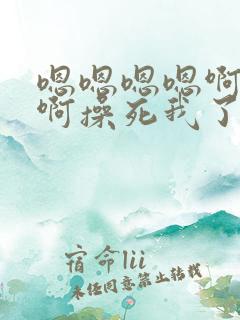 嗯嗯嗯嗯啊
啊操死我了
宿命lii
未经同意禁止转载